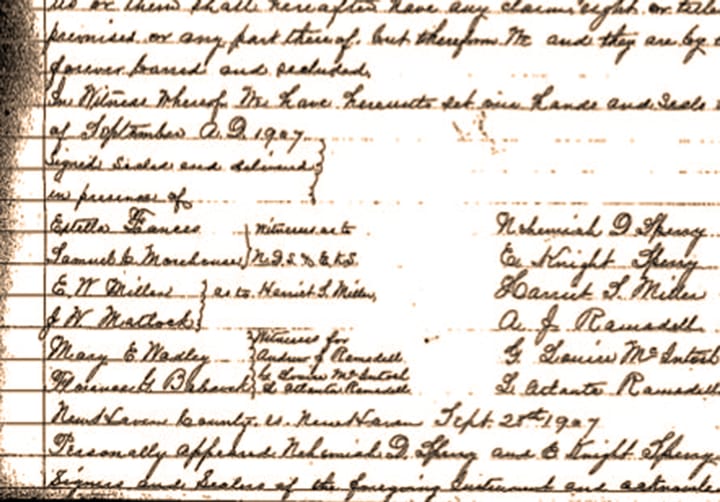 us or them shall hereafter have any claim right or title
premises or any part thereof, but therefrom We and they are by
forever barred and secluded.
In Witness Whereof We have hereunto set our hands and Seals
of September A.D. 1907
Signed Sealed and delivered
in presence of
Estella Frances } Witnesses as to Nehemiah D Sperry
Samuel E. Morehouse } N.D.S. & E.K.S. E. Knight Sperry
E. W Miller } as to Harriet S. Miller, Harriet S. Miller
J W Matlock } A. J. Ramsdell
Mary E Wadley } Witnesses for G Louise McIntosh
Andrew J Ramsdell
Florence G. Babcock } G Louise McIntosh L Atlanta Ramsdell
L Atlanta Ramsdell
New Haven County. ss. New Haven Sept. 28th 1907
Personally appeared Nehemiah D. Sperry and E Knight Sperry
Signers and Sealers of the foregoing Instrument and